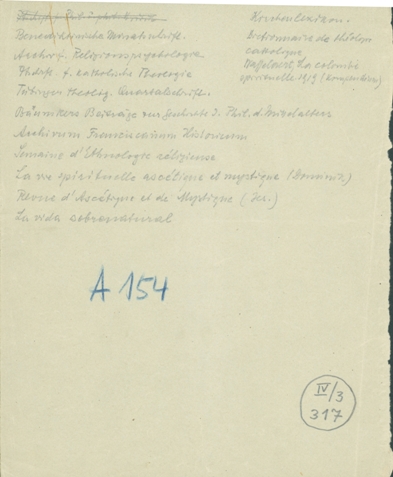 Benediktinische Monatsschrift.
Archiv f. Religionspsychologie
Ztschr. f. katholische Theologie
Tübinger theolog. Quartalschrift.
Bäumkers Beiträge zur Geschichte d. Phil. d. Mittelalters
Archivum Franciscanum Historicum
Semaine d'Ethnologie réligieuse
La vie spirituelle ascétique et mystique (Dominik.)
Revue d'Ascétique et de Mystique (Jes.)
La vida sobrenatural
Kirchenlexikon.
Dictionnaire de théologie
catholique
La colombe
spirituelle 1919
A 154
IV/3
317